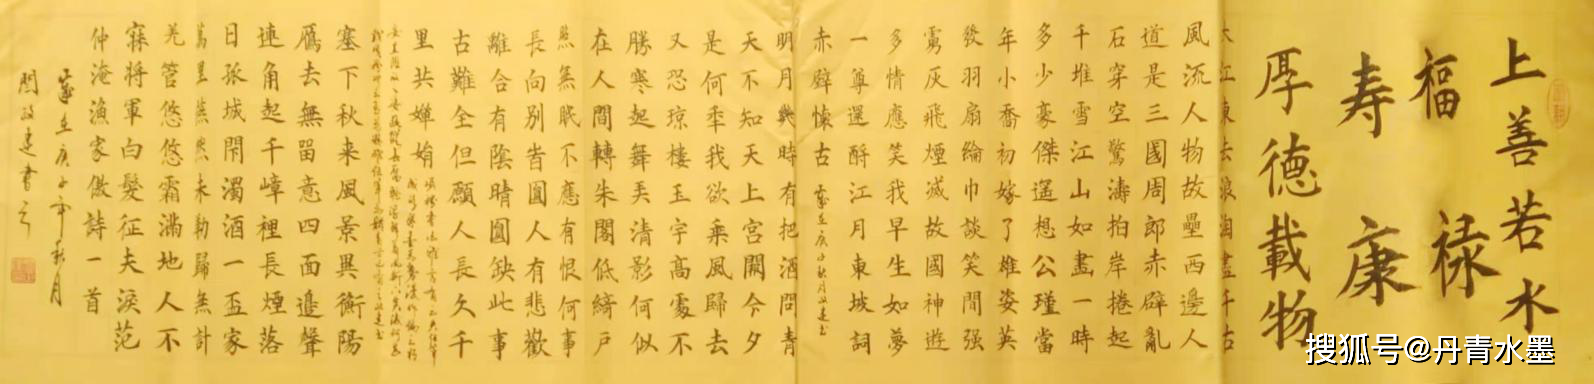 上善若水
福禄
寿康
厚德載物
大江東去浪淘盡千古
風流人物故壘西邊人
道是三國周郎赤壁亂
石穿空驚濤拍岸捲起
千堆雪江山如畫一時
多少豪傑遥想公瑾當
年小喬初嫁了雄姿英
發羽扇綸巾談笑間强
虜灰飛煙滅故國神遊
多情應笑我早生如夢
一尊還酹江月東坡詞
赤壁懷古 歲在庚子秋月政建书
明月幾時有把酒問青
天不知天上宫闕今夕
是何秊我欲乘風歸去
又恐瓊樓玉宇高處不
勝寒起舞弄清影何似
在人間轉朱閣低綺户
照無眠不應有恨何事
長向别旹圓人有悲歡
離合有陰晴圓缺此事
古難全但願人長久千
里共嬋娟
塞下秋来風景異衡陽
雁去無畱意四面邉聲
連角起千嶂裡長煙落
日孤城閉濁酒一盃家
萬里燕然未勒歸無計
羌管悠悠霜滿地人不
寐將軍白髮征夫淚范
仲淹漁家傲詩一首
歲在庚子年秋月
閻政建書之
搜狐号@丹青水墨